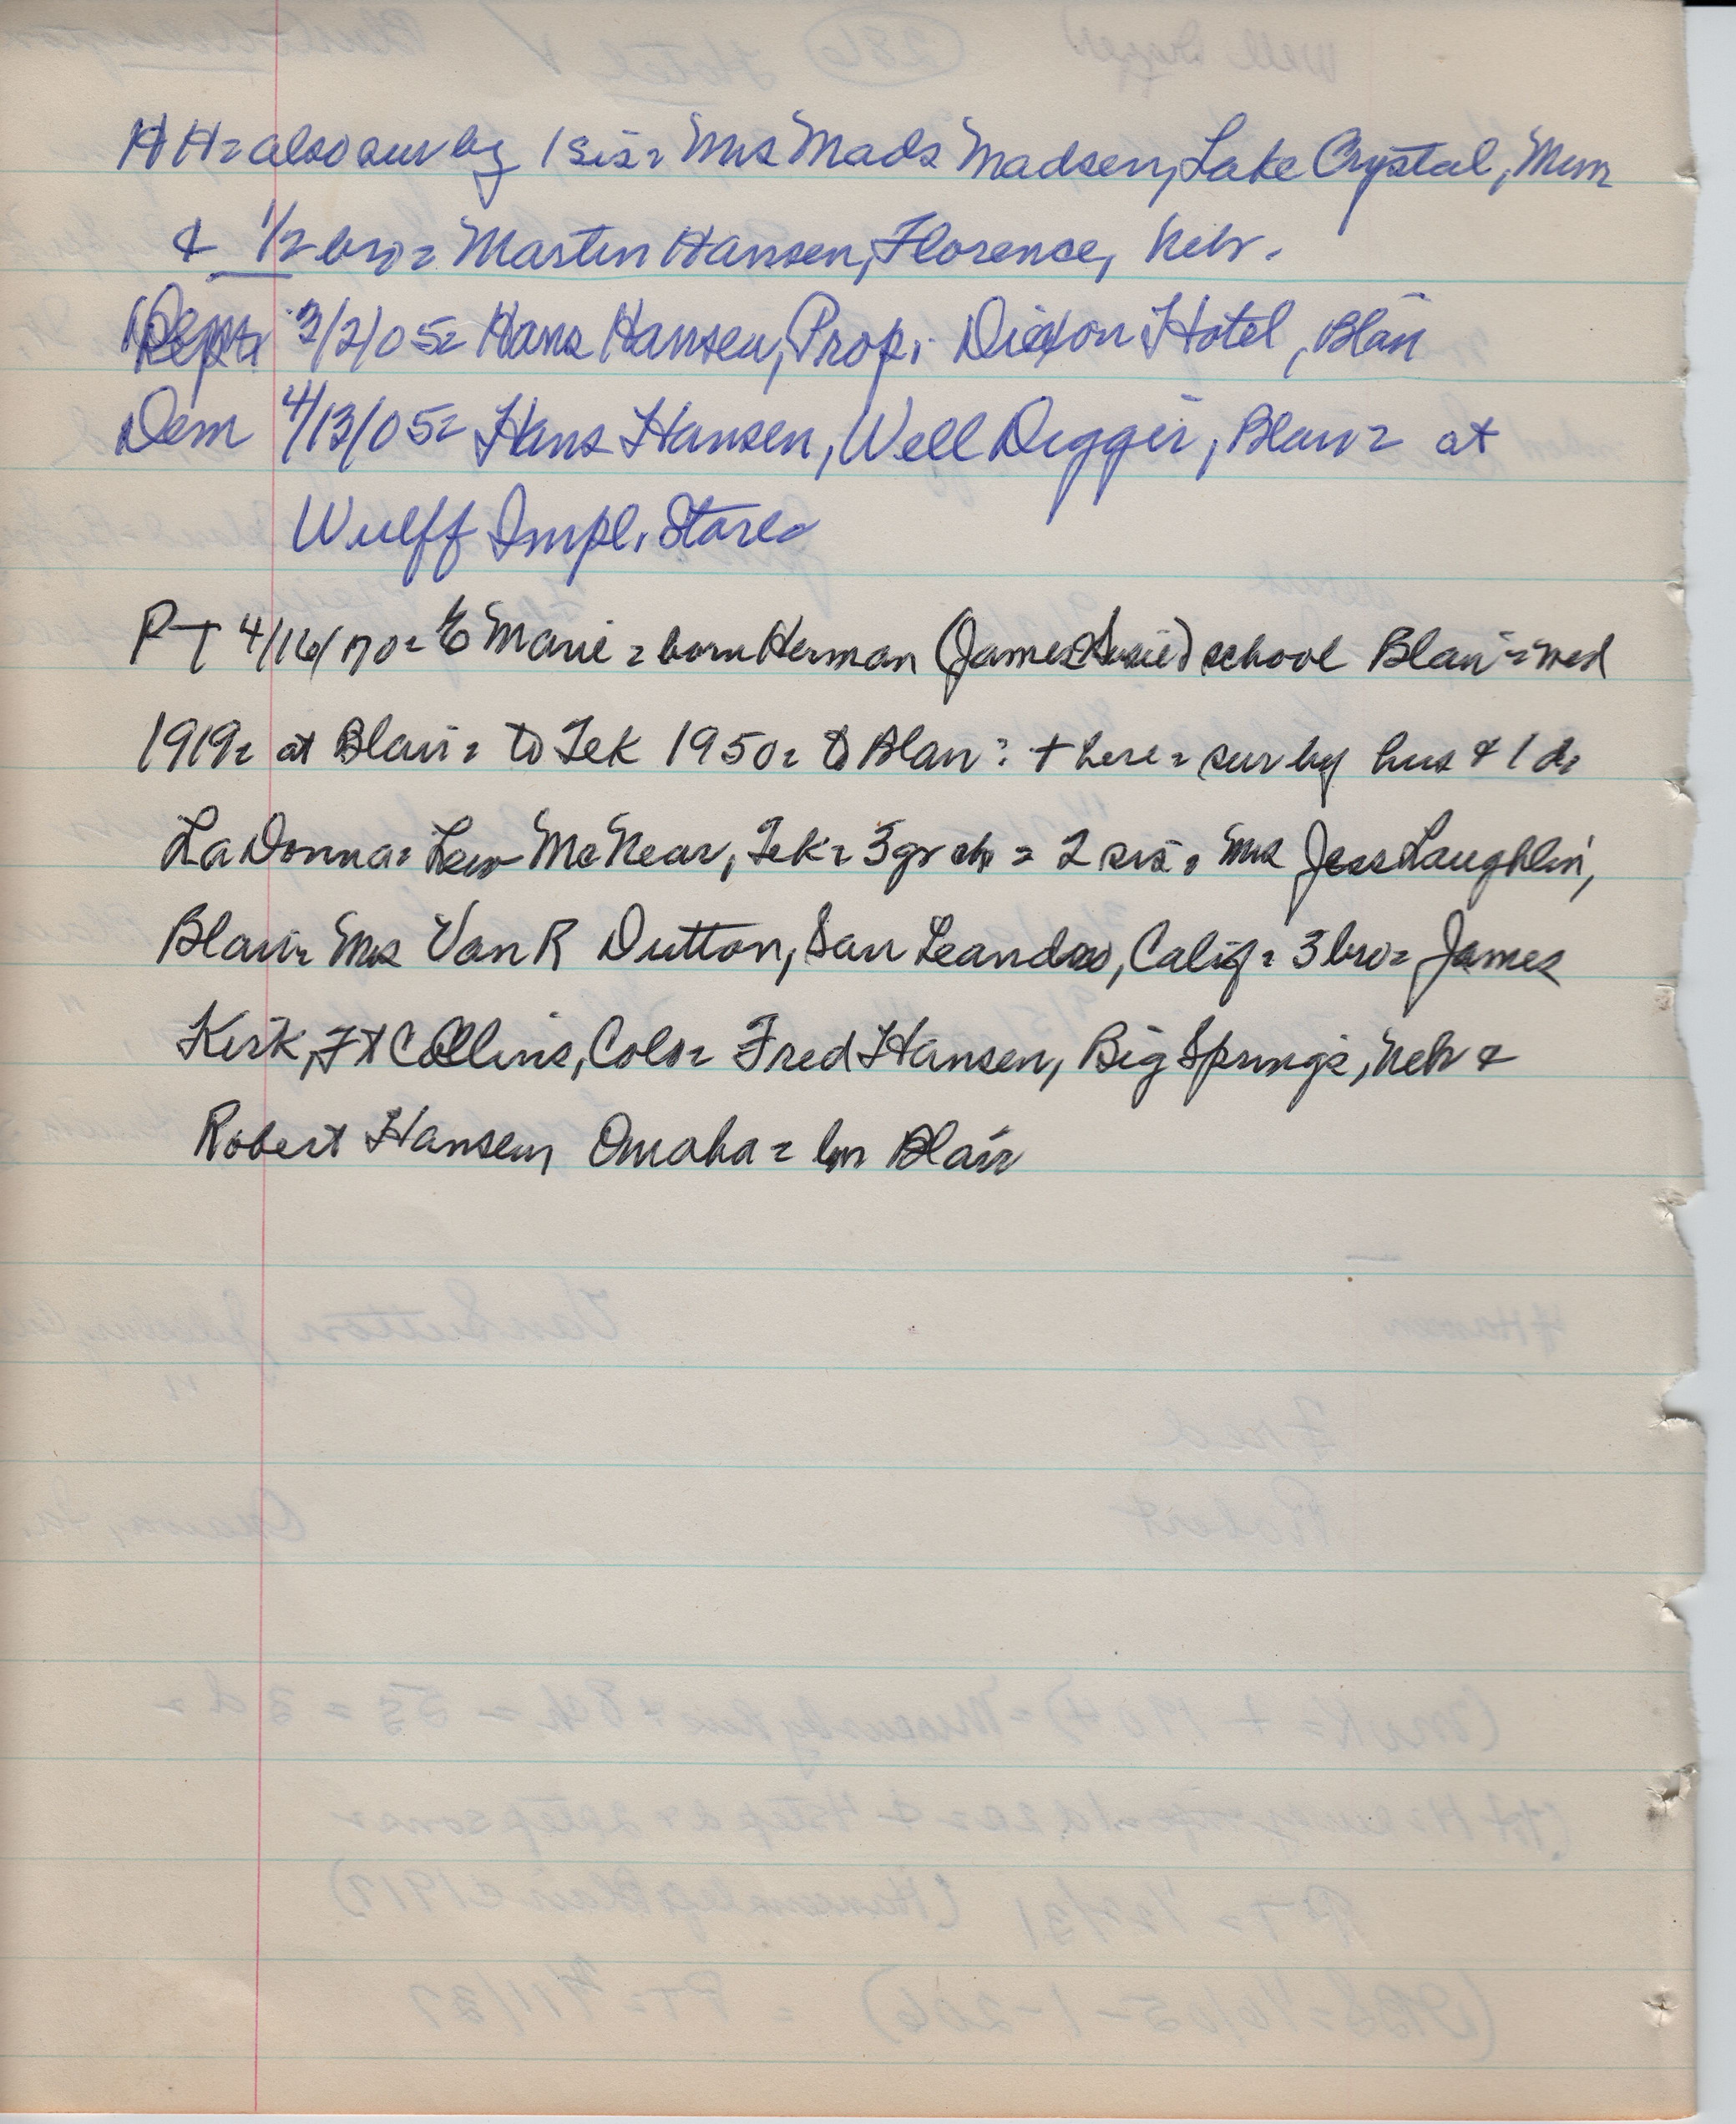 HH = also sur by 1 sis = Mrs Mads Madsen, Lake Crystal, Minn
& 1/2 bro = Martin Hansen, Florence, Nebr.
3/2/05 = Hans Hansen, Prop. Dixon Hotel, Blair
Dem 4/13/05 = Hans Hansen, Well Digger, Blair = at
Wulff Impl. Store =
PT 4/16/70 = E Marie = born Herman (James & Susie) school Blair = wed
1919 = at Blair = to Tek 1950 = to Blair = + here = sur by hus & 1 d =
LaDonna = Lew McNear, Tek = 3 gr ch = 2 sis = Mrs Jess Laughlin,
Blair = Mrs Van R Dutton, San Leandro, Calif = 3 bro = James
Kirk, Ft Collins, Colo = Fred Hansen, Big Springs, Nebr &
Robert Hansen, Omaha = bur Blair